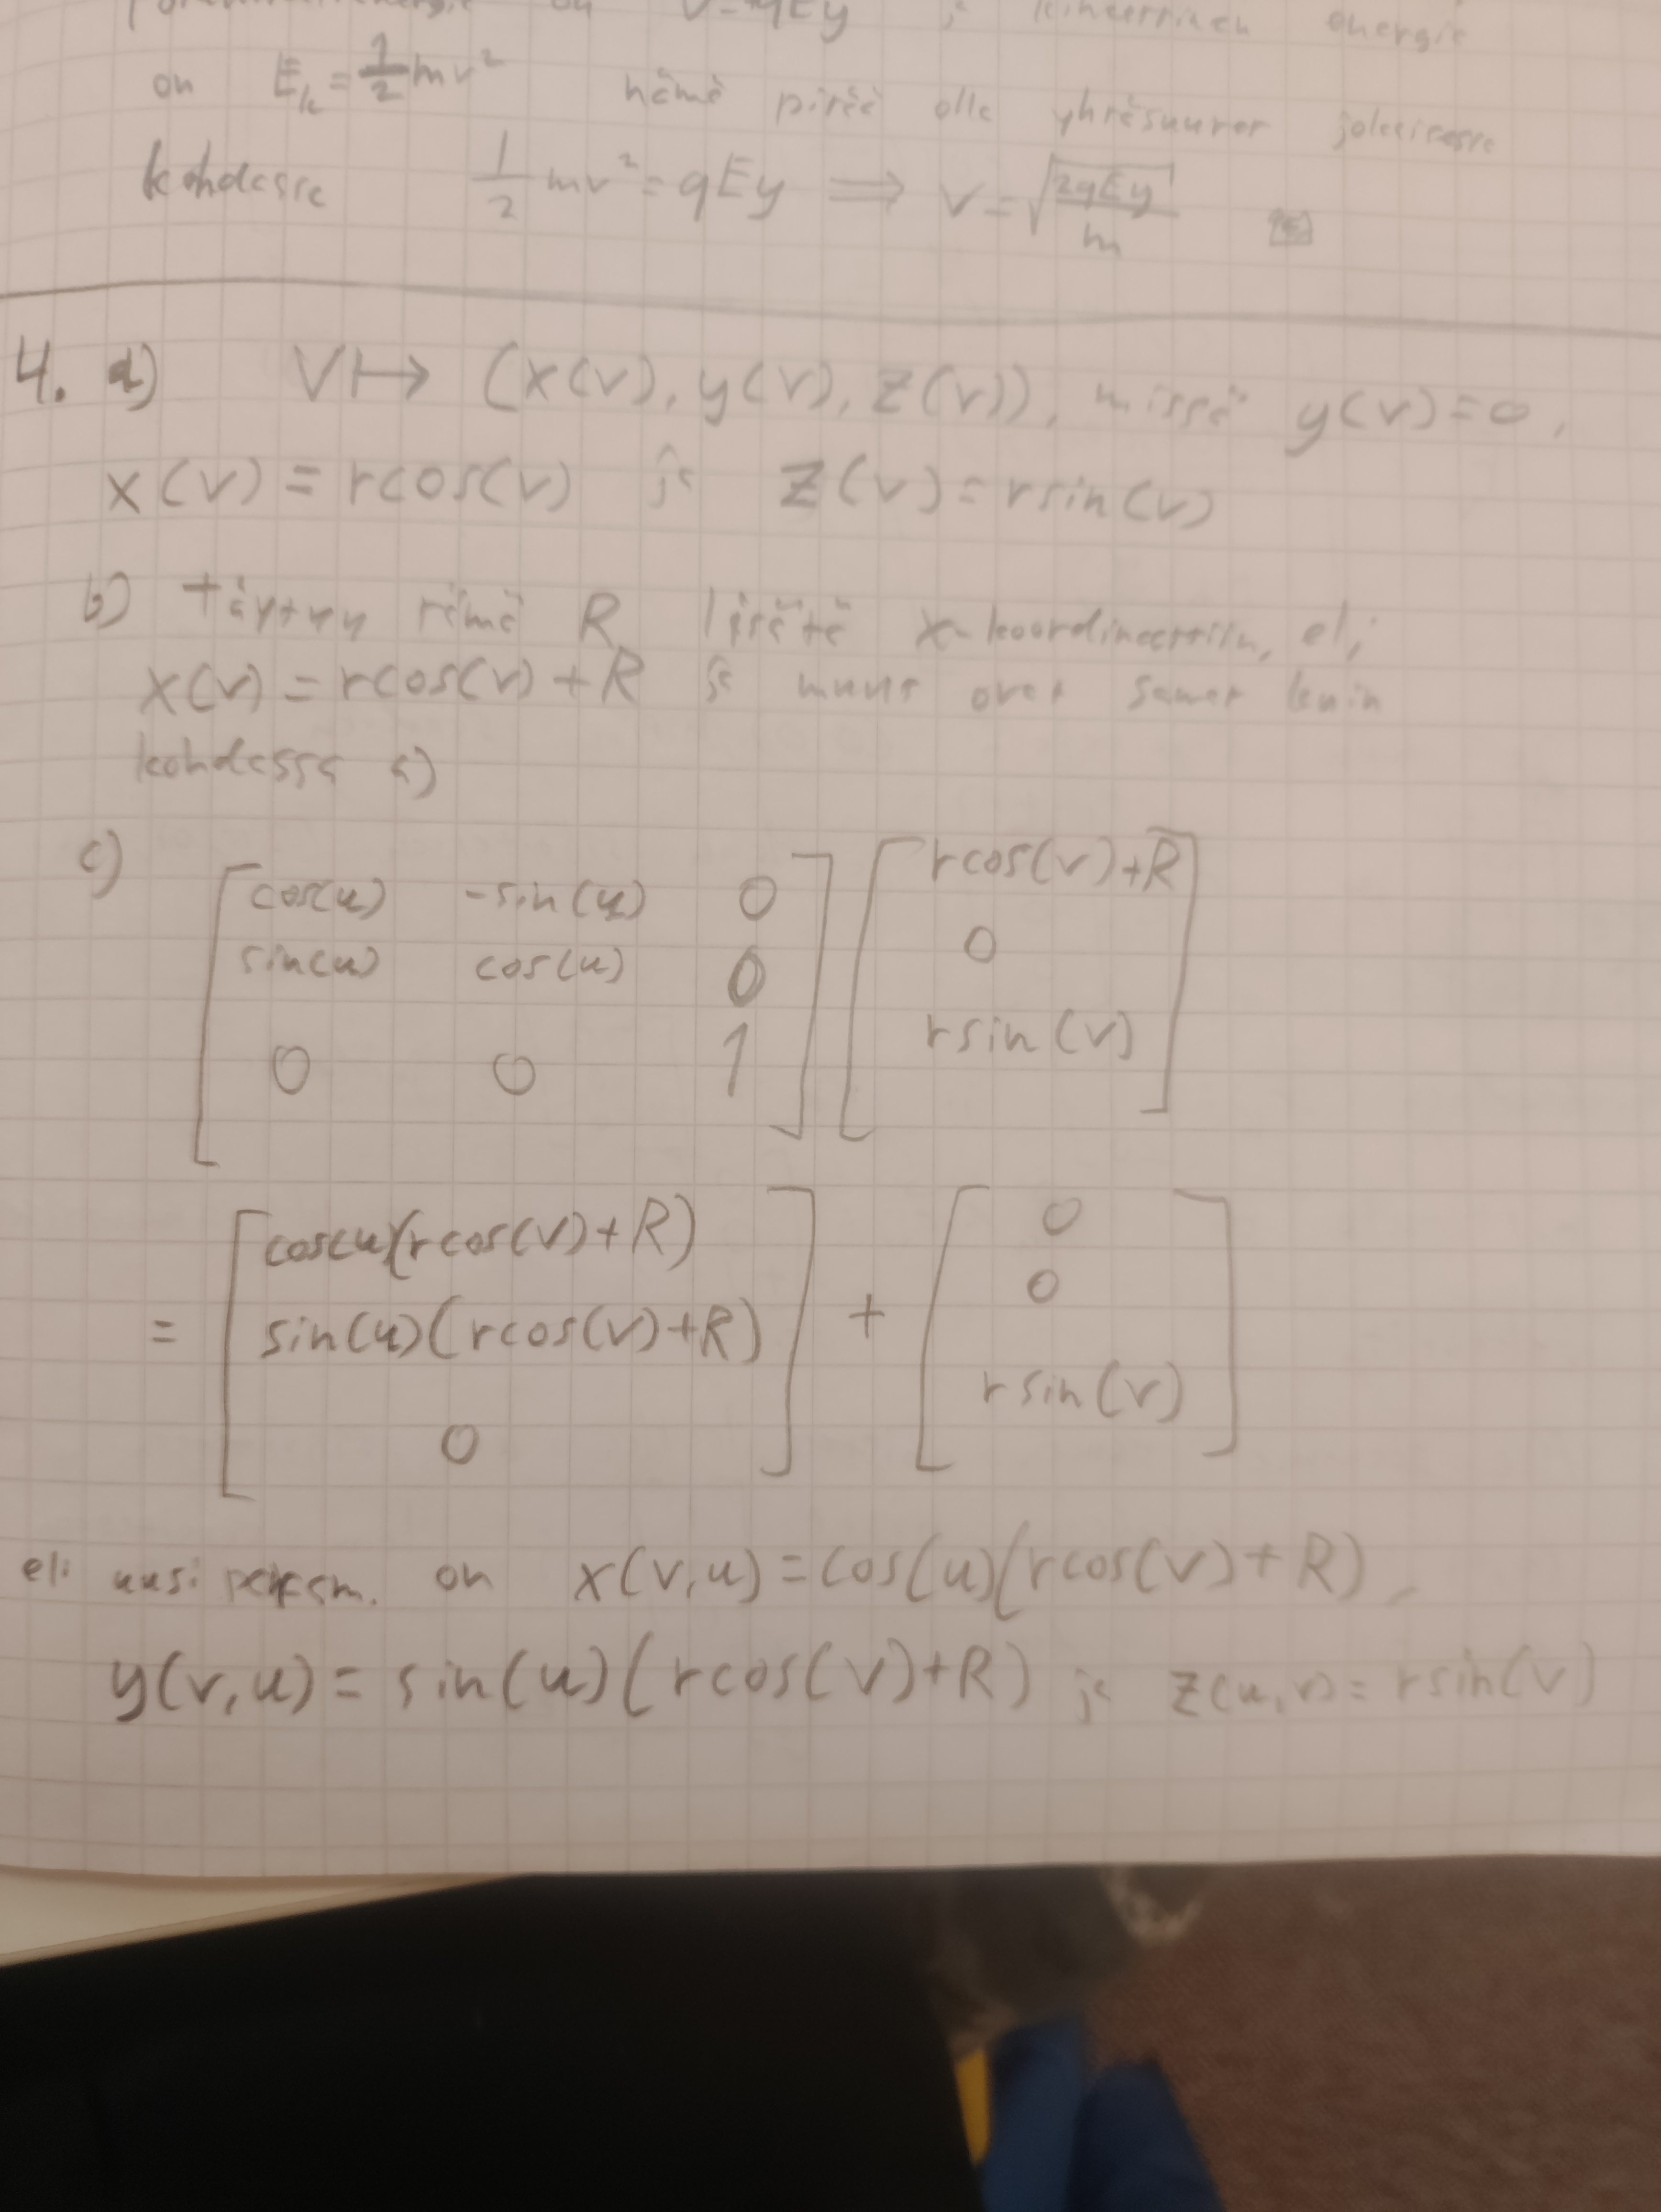 on V=qEy ja kineettinen energia
on E_k = 1/2 mv² nämä pitää olla yhtäsuuret jokaisessa
kohdassa 1/2 mv² = qEy ⟹ v = √(2qEy/m)
4. a) V ↦ (x(v), y(v), z(v)), missä y(v)=0,
x(v) = rcos(v) ja z(v) = rsin(v)
b) täytyy tämä R lisätä x-koordinaattiin, eli
x(v) = rcos(v) + R ja muut ovat samat kuin
kohdassa a)
c) [cos(u) -sin(u) 0] [rcos(v)+R]
[sin(u) cos(u) 0] [0]
[0 0 1] [rsin(v)]
= [cos(u)(rcos(v)+R)] + [0]
[sin(u)(rcos(v)+R)] [0]
[0] [rsin(v)]
eli uusi param. on x(v,u) = cos(u)(rcos(v)+R),
y(v,u) = sin(u)(rcos(v)+R) ja z(u,v) = rsin(v)